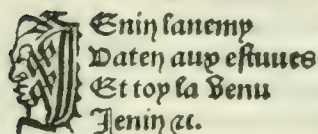 JEnin lanemy
Vaten aux eſtuues
Et toy la Venu
Jenin ⁊c.